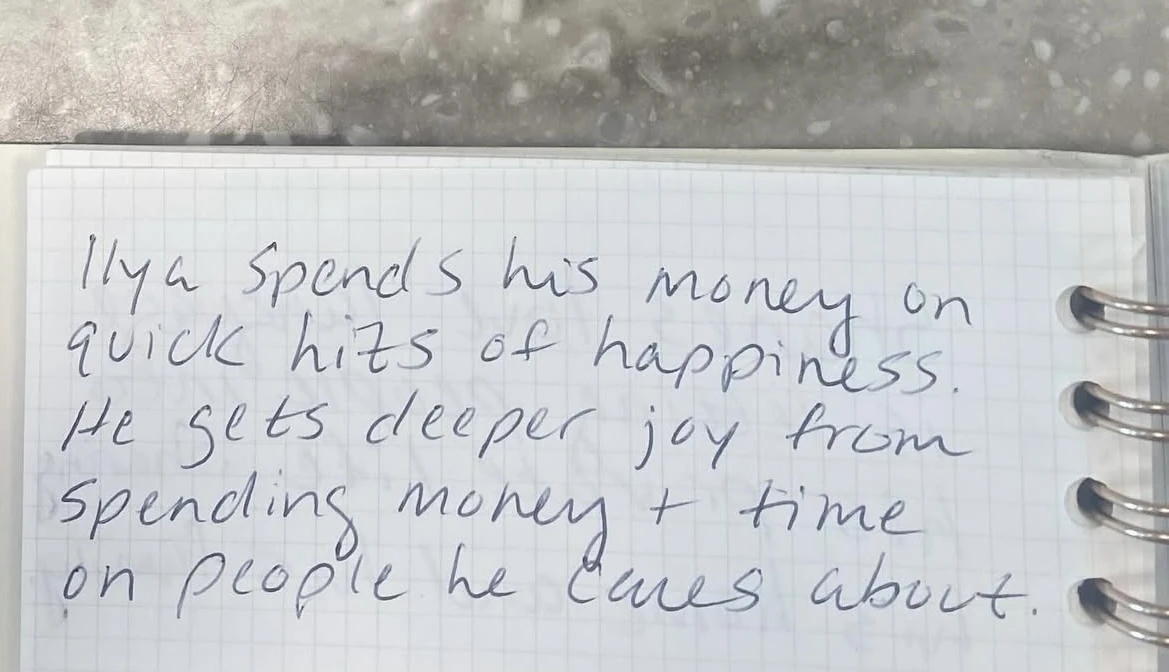 Ilya spends his money on
quick hits of happiness.
He gets deeper joy from
spending money + time
on people he cares about.